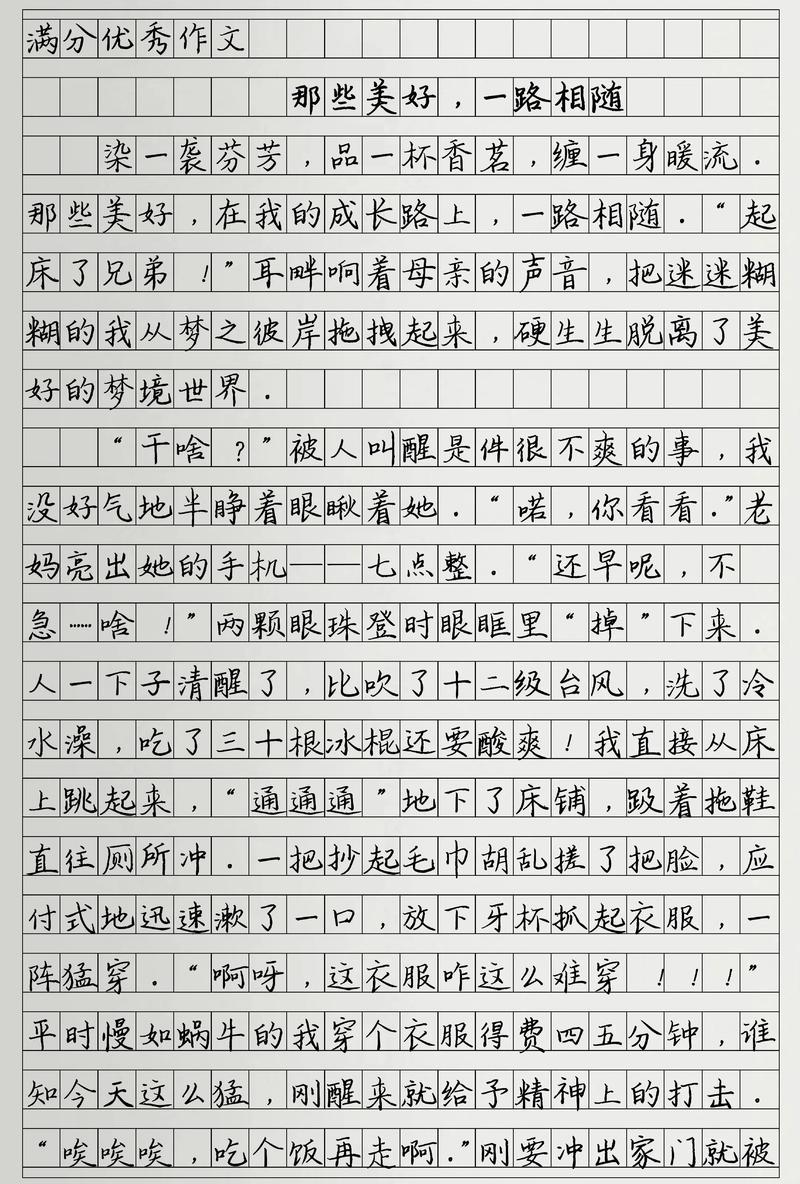 满分优秀作文
那些美好，一路相随
染一袭芬芳，品一杯香茗，缠一身暖流．
那些美好，在我的成长路上，一路相随．“起
床了兄弟！”耳畔响着母亲的声音，把迷迷糊
糊的我从梦之彼岸拖拽起来，硬生生脱离了美
好的梦境世界．
“干啥？”被人叫醒是件很不爽的事，我
没好气地半睁着眼瞅着她．“喏，你看看．”老
妈亮出她的手机——七点整．“还早呢，不
急……啥！”两颗眼珠登时眼眶里“掉”下来．
人一下子清醒了，比吹了十二级台风，洗了冷
水澡，吃了三十根冰棍还要酸爽！我直接从床
上跳起来，“通通通”地下了床铺，趿着拖鞋
直往厕所冲．一把抄起毛巾胡乱搓了把脸，应
付式地迅速漱了一口，放下牙杯抓起衣服，一
阵猛穿．“啊呀，这衣服咋这么难穿！！！”
平时慢如蜗牛的我穿个衣服得费四五分钟，谁
知今天这么猛，刚醒来就给予精神上的打击．
“唉唉唉，吃个饭再走啊．”刚要冲出家门就被